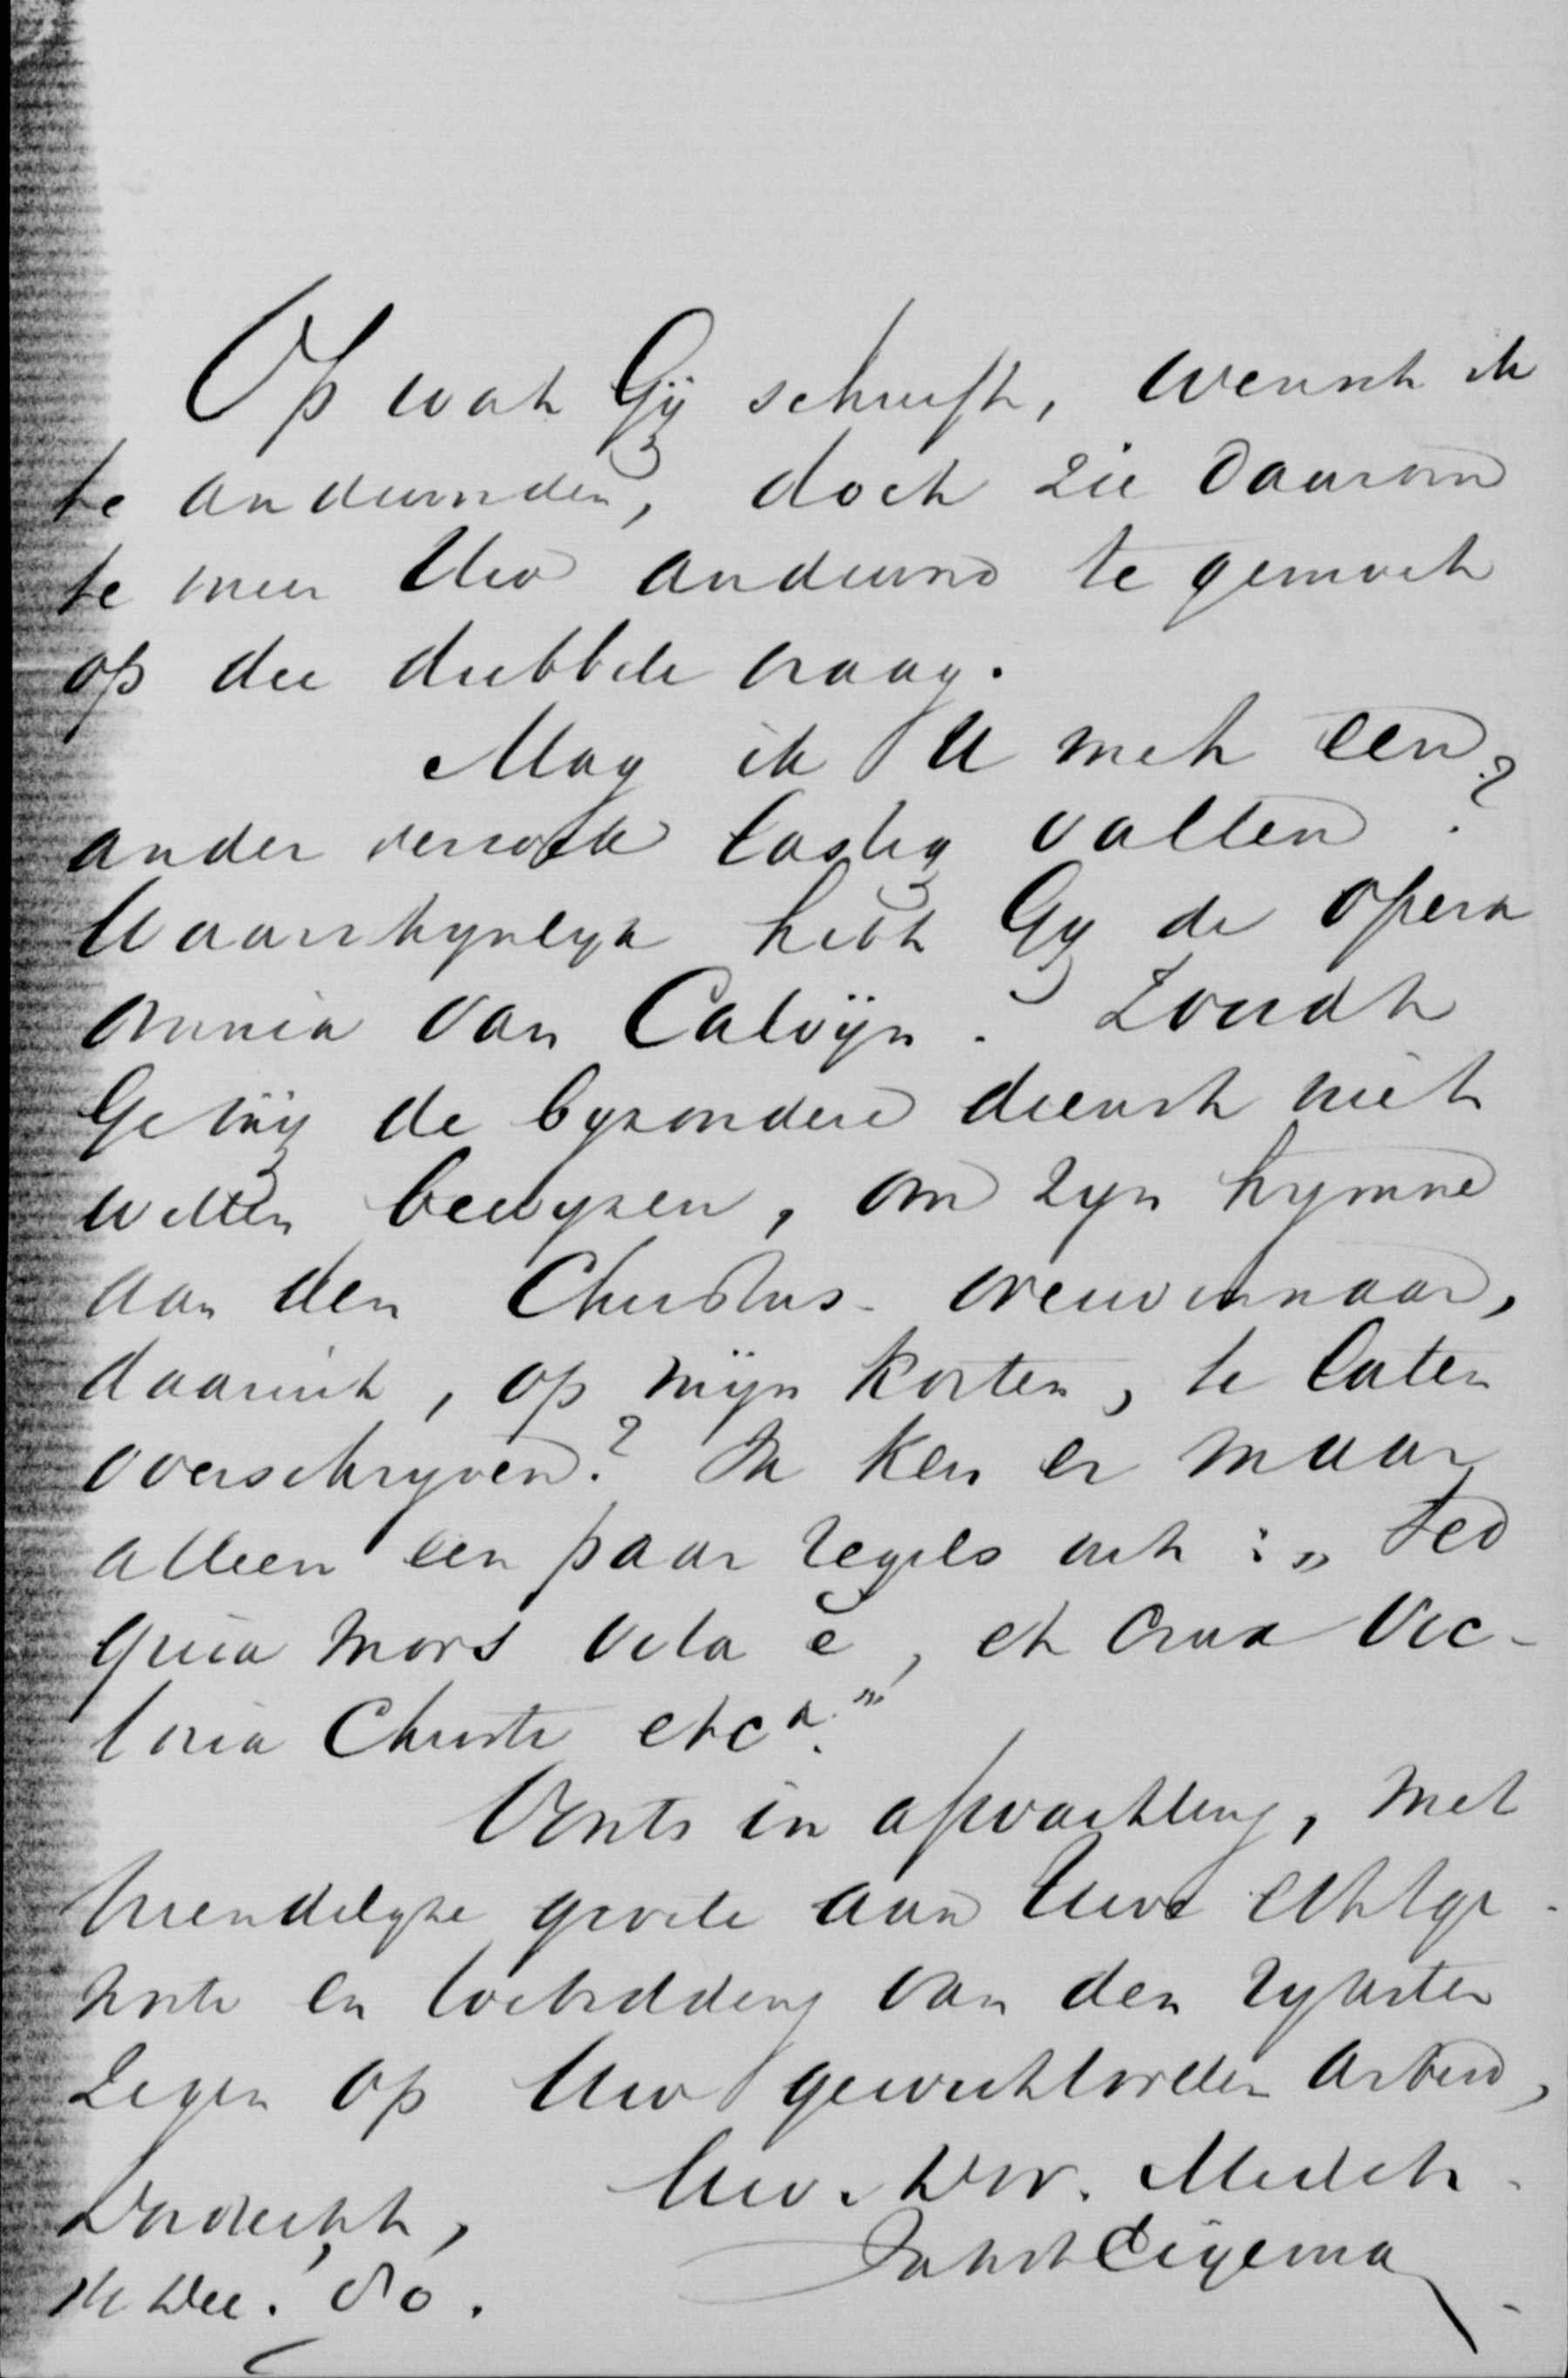 Op wat Gij schrijft, wensch ik
te andwoorden, doch zie daarom
te meer Uw andwoord te gemoet
op die dubbele vraag.
Mag ik U met een
ander verzoek lastig vallen?
Waarschynlyk hebt Gy de opera
omnia van Calvijn. Zoudt
Ge mij de byzondere dienst niet
willen bewyzen, om zyn hymne
aan den Christus-overwinnaar,
daaruit, op mijn kosten, te laten
overschryven? Ik ken er maar
alleen een paar regels uit: „Sed
quia mors vita ē, et crux Vic-
toria Christi etca.”
Vonts in afwachting, met
vriendelyke groete aan Uwe echtge-
note en toebidding van den rijksten
Zegen op Uw gewichtvollen arbeid,
Uw. Dw. Medeb.
Dordrecht,
Dec. '80.
Eigeman